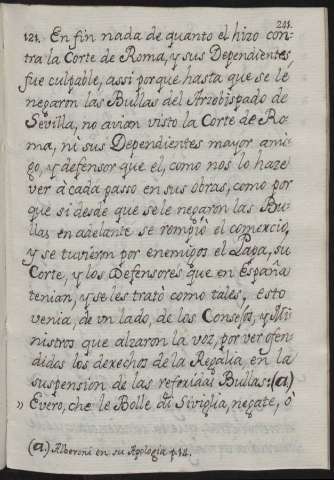 241.
121. En fin nada de quanto el hizo con-
tra la Corte de Roma, y sus Dependientes,
fue culpable, assi porque hasta que se le
negaron las Bullas del Arzobispado de
Sevilla, no avian visto la Corte de Ro-
ma, ni sus Dependientes mayor ami-
go, y defensor que el, como nos lo haze
ver à cada passo en sus obras, como por
que si desde que se le negaron las Bu-
llas en adelante se rompiò el comercio,
y se tuvieron por enemigos el Papa, su
Corte, y los Defensores que en España
tenian, y se les tratò como tales, esto
venia, de un lado, de los Consejos, y Mi-
nistros que alzaron la voz, por ver ofen-
didos los derechos de la Regalia, en la
suspension de las referidas Bullas: (a)
» Evero, che le Bolle di Siviglia, negate, ò
(a.) Alberoni en su Apologia p. 14.